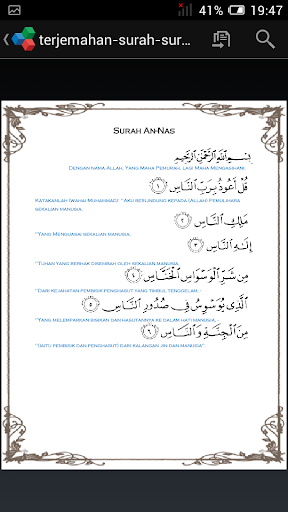 41% 19:47
terjemahan-surah-sur...
Surah An-Nas
بِسْمِ اللَّهِ الرَّحْمَٰنِ الرَّحِيمِ
Dengan nama Allah, Yang Maha Pemurah, lagi Maha Mengasihani.
قُلْ أَعُوذُ بِرَبِّ النَّاسِ ﴿١﴾
Katakanlah (wahai Muhammad): "Aku berlindung kepada (Allah) Pemulihara
sekalian manusia.
مَلِكِ النَّاسِ ﴿٢﴾
"Yang Menguasai sekalian manusia,
إِلَٰهِ النَّاسِ ﴿٣﴾
"Tuhan yang berhak disembah oleh sekalian manusia,
مِن شَرِّ الْوَسْوَاسِ الْخَنَّاسِ ﴿٤﴾
"Dari kejahatan pembisik penghasut yang timbul tenggelam, -
الَّذِي يُوَسْوِسُ فِي صُدُورِ النَّاسِ ﴿٥﴾
"Yang melemparkan bisikan dan hasutannya ke dalam hati manusia, -
مِنَ الْجِنَّةِ وَالنَّاسِ ﴿٦﴾
"(Iaitu pembisik dan penghasut) dari kalangan jin dan manusia".